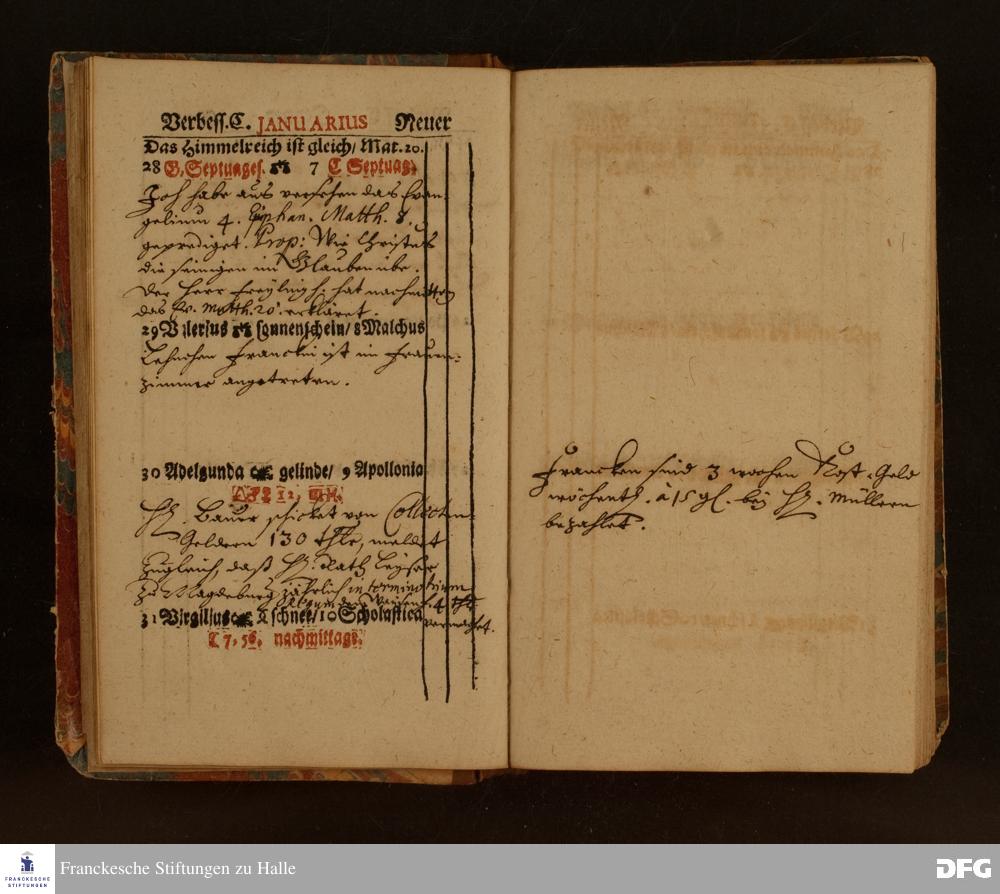 Verbess. C. JANUARIUS Neuer
Das Himmelreich ist gleich/ Mat. 20.
28 G. Septuages. 7 C Septuag.
Ich habe aus versehen das Evan-
gelium 4. Epiphan. Matth. 8.
geprediget. Prop: Wie Christus
die seinigen im Glauben übe.
Der Herr Freylingh. hat nachmittag
das Ev. Matth. 20. erkläret.
29 Valerius Sonnenschein/ 8 Malchus
Lehnchen Franckin ist im Frauen-
zimmer angetreten.
30 Adelgunda gelinde/ 9 Apollonia
12,
H. Bauer schicket von Collecten-
Geldern 130 thlr, meldet
zugleich, daß H. Rath Leyser
zu Magdeburg jährlich in termino trium
dem Waisenh. 4 thlr
31 Virgilius schnee/ 10 Scholastica
vermachet.
C 7, 56. nachmittags.
Francken sind 3 wochen Kost-Geld
wöchentl. à 15 gl. bey H. Müllern
bezahlet.
FRANCKESCHE
STIFTUNGEN
Franckesche Stiftungen zu Halle
DFG